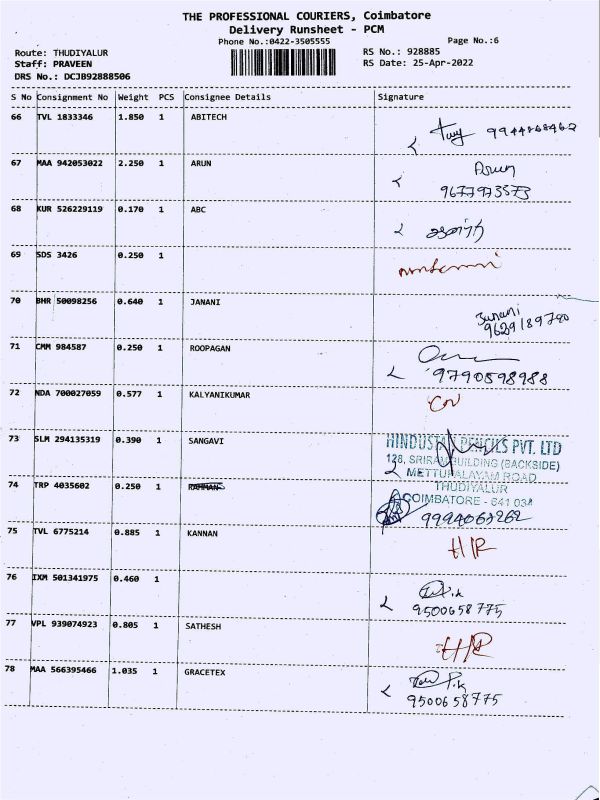 THE PROFESSIONAL COURIERS, Coimbatore
Delivery Runsheet - PCM
Phone No.:0422-3505555
Page No.:6
Route: THUDIYALUR
RS No.: 928885
Staff: PRAVEEN
RS Date: 25-Apr-2022
DRS No.: DCJB92888506
S No Consignment No Weight PCS Consignee Details Signature
66 TVL 1833346 1.850 1 ABITECH
67 MAA 942053022 2.250 1 ARUN Arun
9677973573
68 KUR 526229119 0.170 1 ABC
69 SDS 3426 0.250 1
70 BHR 50098256 0.640 1 JANANI Janani
9629189790
71 CMM 984587 0.250 1 ROOPAGAN
9790598988
72 NDA 700027059 0.577 1 KALYANIKUMAR
73 SLM 294135319 0.390 1 SANGAVI HINDUSTAN PENCILS PVT. LTD
128, SRIRAM BUILDING (BACKSIDE)
METTUPALAYAM ROAD
74 TRP 4035602 0.250 1 RAHMAN THUDIYALUR
COIMBATORE - 641 034
75 TVL 6775214 0.885 1 KANNAN H/R
76 IXM 501341975 0.460 1
9500658775
77 VPL 939074923 0.805 1 SATHESH H/R
78 MAA 566395466 1.035 1 GRACETEX
9500658775